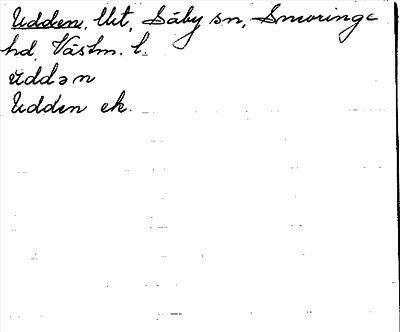 Udden, Utt, Säby sn, Snevringe
hd, Västm. l.
ŭddən
Udden ek.